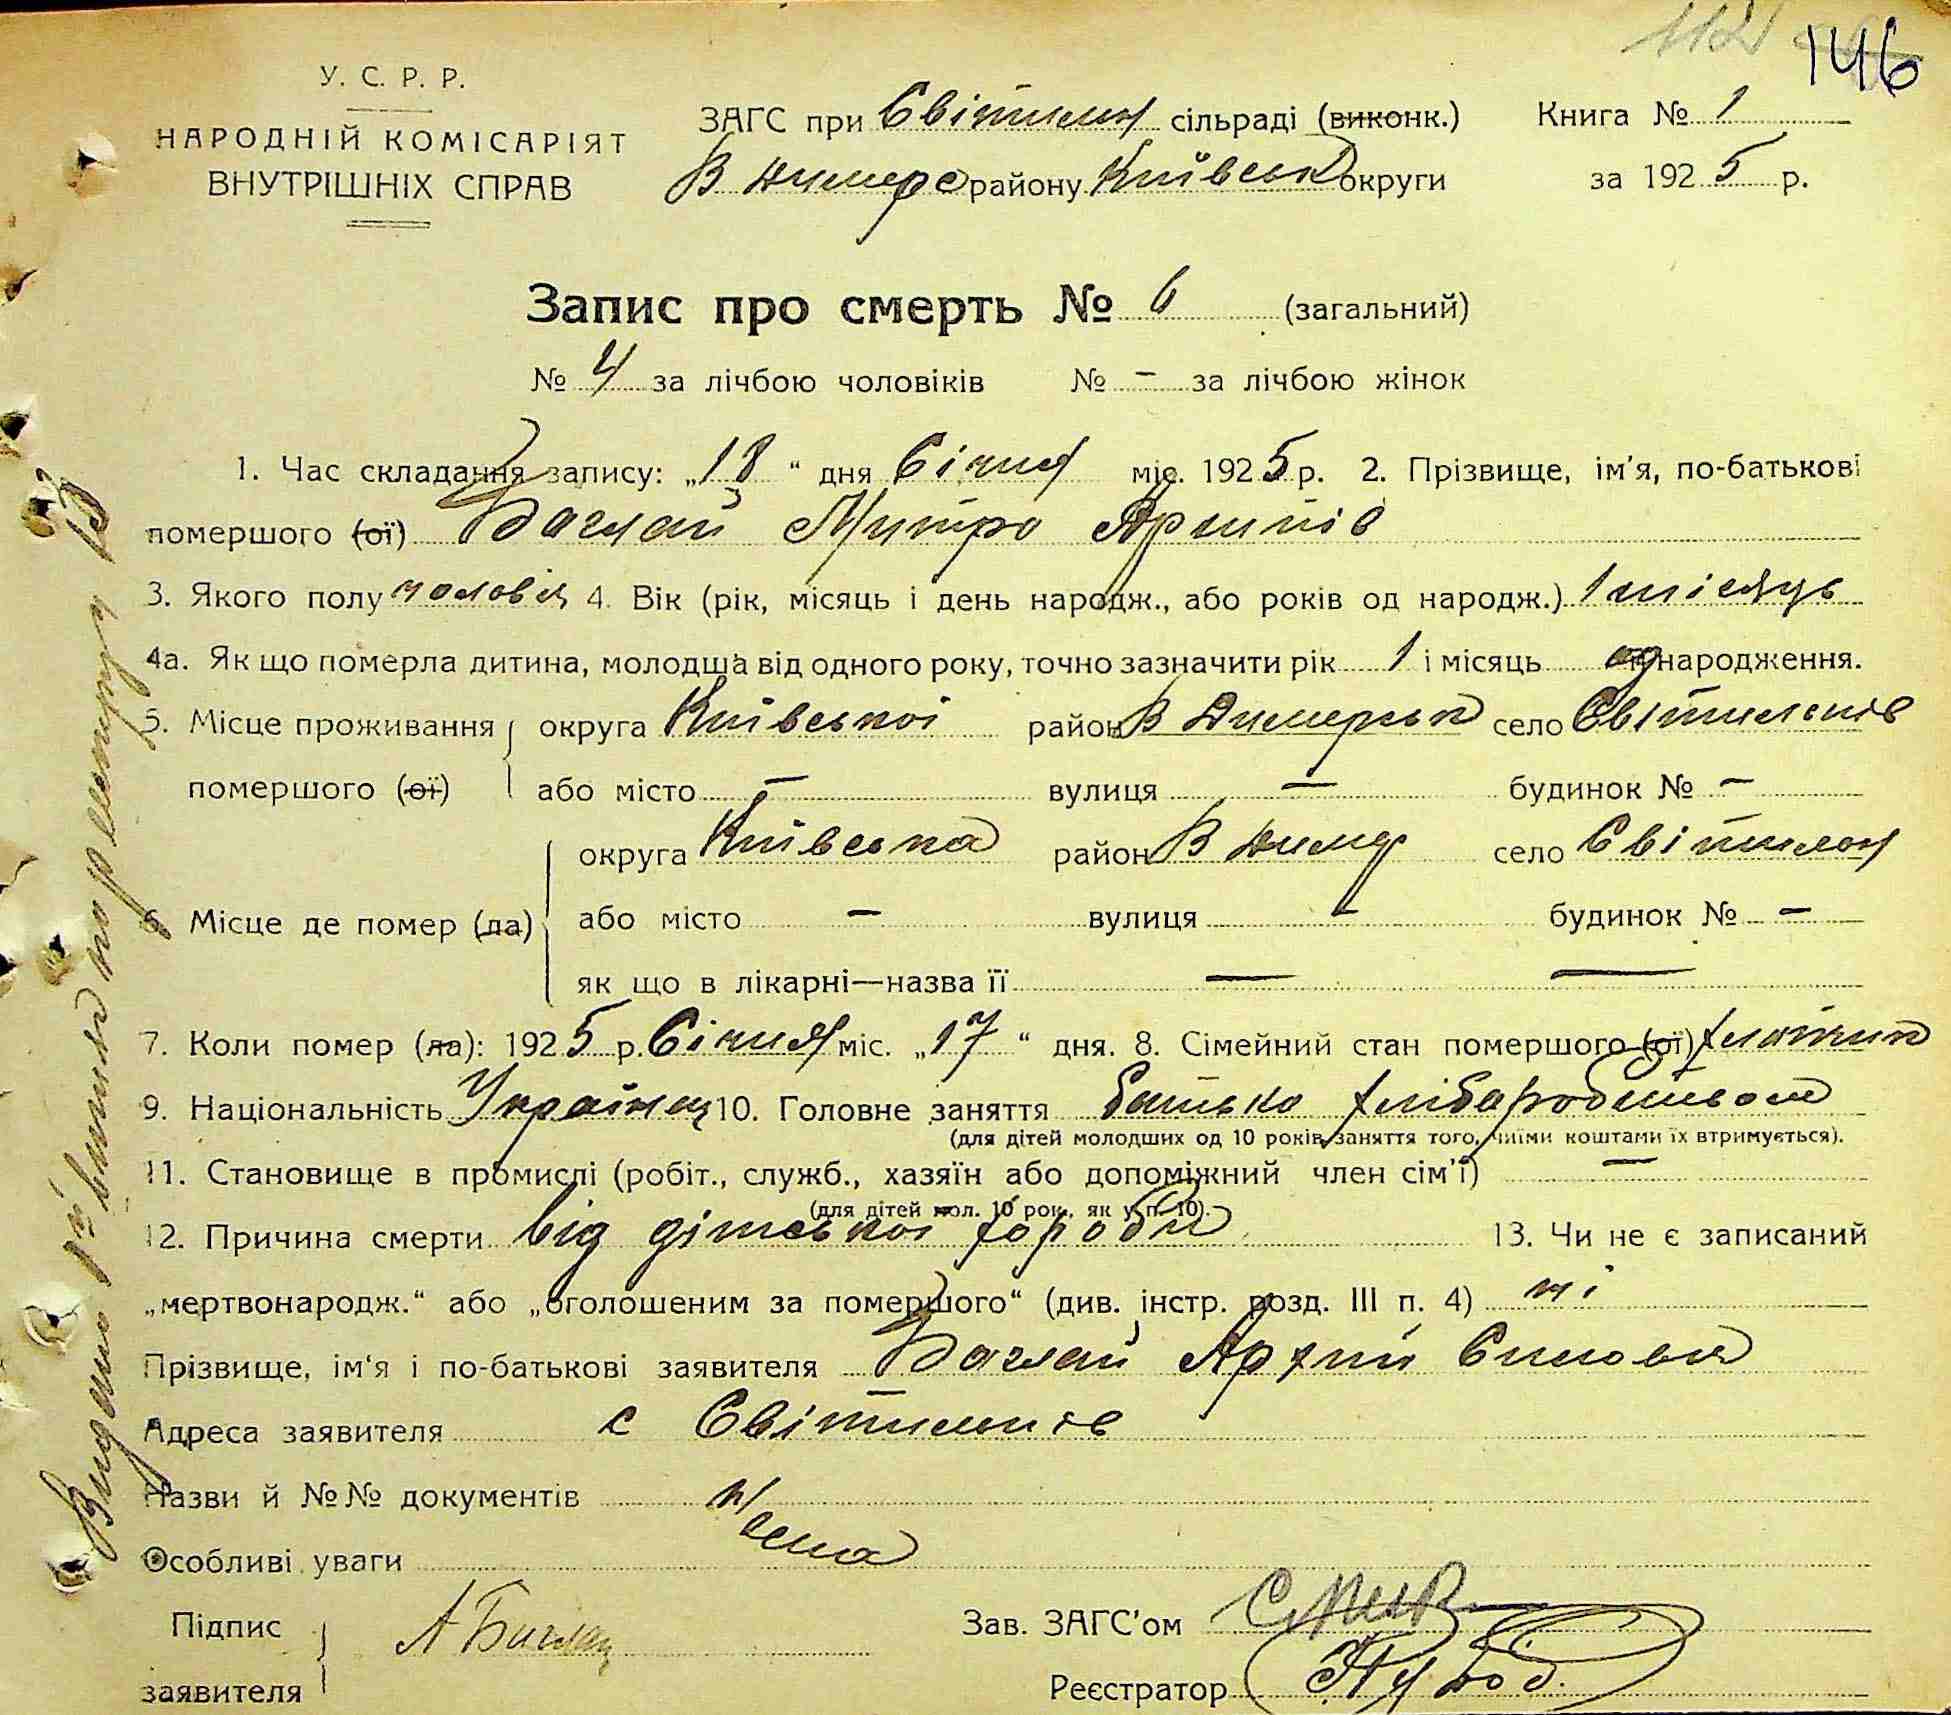 112 146
У. С. Р. Р.
НАРОДНІЙ КОМІСАРІЯТ
ВНУТРІШНІХ СПРАВ
ЗАГС при Світильн сільраді (виконк.) Книга № 1
В Димерс району Київськ округи за 1925 р.
Запис про смерть № 6 (загальний)
№ 4 за лічбою чоловіків № - за лічбою жінок
1. Час складання запису: „18“ дня Січня міс. 1925 р. 2. Прізвище, ім'я, по-батькові
помершого (ої) Баглай Митро Архипів
3. Якого полу чоловіч 4. Вік (рік, місяць і день народж., або років од народж.) 1 місяць
4а. Як що померла дитина, молодша від одного року, точно зазначити рік 1 і місяць од народження.
5. Місце проживання округа Київської район В Димерськ село Світильнів
помершого (ої) або місто — вулиця — будинок № —
округа Київська район В Димер село Світильн
6. Місце де помер (ла) або місто — вулиця — будинок № —
як що в лікарні—назва її — —
7. Коли помер (ла): 1925 р. Січня міс. „17“ дня. 8. Сімейний стан помершого (ої) хлопчик
9. Національність Українец 10. Головне заняття батько хліборобством
(для дітей молодших од 10 років заняття того, чиїми коштами їх втримується).
11. Становище в промислі (робіт., служб., хазяїн або допоміжний член сім'ї) —
(для дітей мол. 10 рок., як у п. 10).
12. Причина смерти від дітської хороби 13. Чи не є записаний
„мертвонародж.“ або „оголошеним за помершого“ (див. інстр. розд. III п. 4) ні
Прізвище, ім'я і по-батькові заявителя Баглай Архип
Адреса заявителя с Світильнів
Назви й №№ документів
Особливі уваги
Підпис
заявителя А Баглай
Зав. ЗАГС'ом
Реєстратор